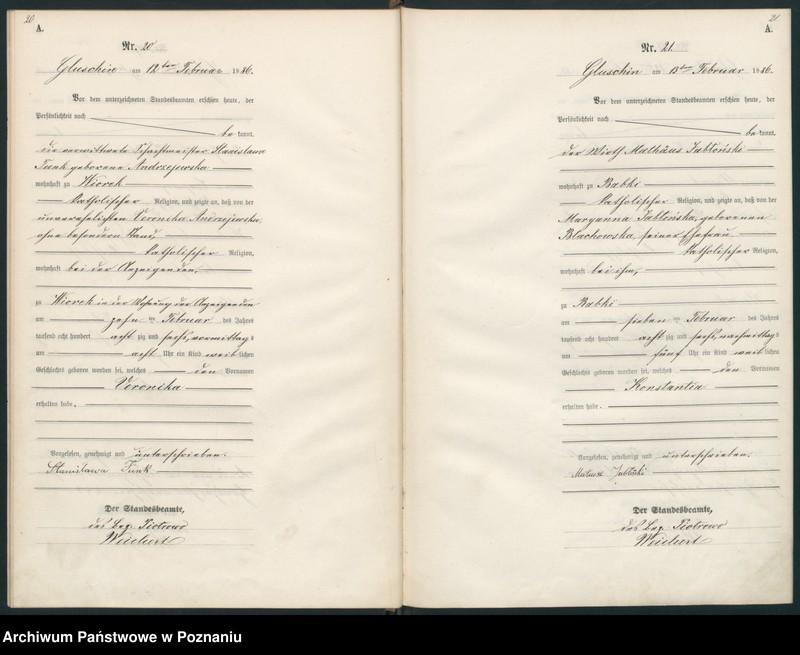 20
A.
Nr. 20
Gluschin am 12ten Februar 1886.
Vor dem unterzeichneten Standesbeamten erschien heute, der
Persönlichkeit nach
be kannt,
die verwittwete Schachtmeister Stanislawa
Funk geborene Andrzejewska
wohnhaft zu Wiorek
katholischer Religion, und zeigte an, daß von der
unverehelichten Veronika Andrzejewska,
ohne besondern Stand,
katholischer Religion,
wohnhaft bei der Anzeigenden,
zu Wiorek in der Wohnung der Anzeigenden
am zehn ten Februar des Jahres
tausend acht hundert acht zig und sechs, vormittags
um acht Uhr ein Kind weib lichen
Geschlechts geboren worden sei, welches den Vornamen
Veronika
erhalten habe.
Vorgelesen, genehmigt und unterschrieben.
Stanisława Funk
Der Standesbeamte,
des Bez. Piotrowo
Weichert
21
A.
Nr. 21
Gluschin am 13ten Februar 1886.
Vor dem unterzeichneten Standesbeamten erschien heute, der
Persönlichkeit nach
be kannt,
der Wirth Mathäus Jabłoński
wohnhaft zu Babki
katholischer Religion, und zeigte an, daß von der
Maryanna Jabłońska, geborenen
Blachowska, seiner Ehefrau
katholischer Religion,
wohnhaft bei ihm,
zu Babki
am sieben ten Februar des Jahres
tausend acht hundert acht zig und sechs, nachmittags
um fünf Uhr ein Kind weib lichen
Geschlechts geboren worden sei, welches den Vornamen
Konstantia
erhalten habe.
Vorgelesen, genehmigt und unterschrieben.
Der Standesbeamte,
des Bez. Piotrowo
Weichert
Archiwum Państwowe w Poznaniu